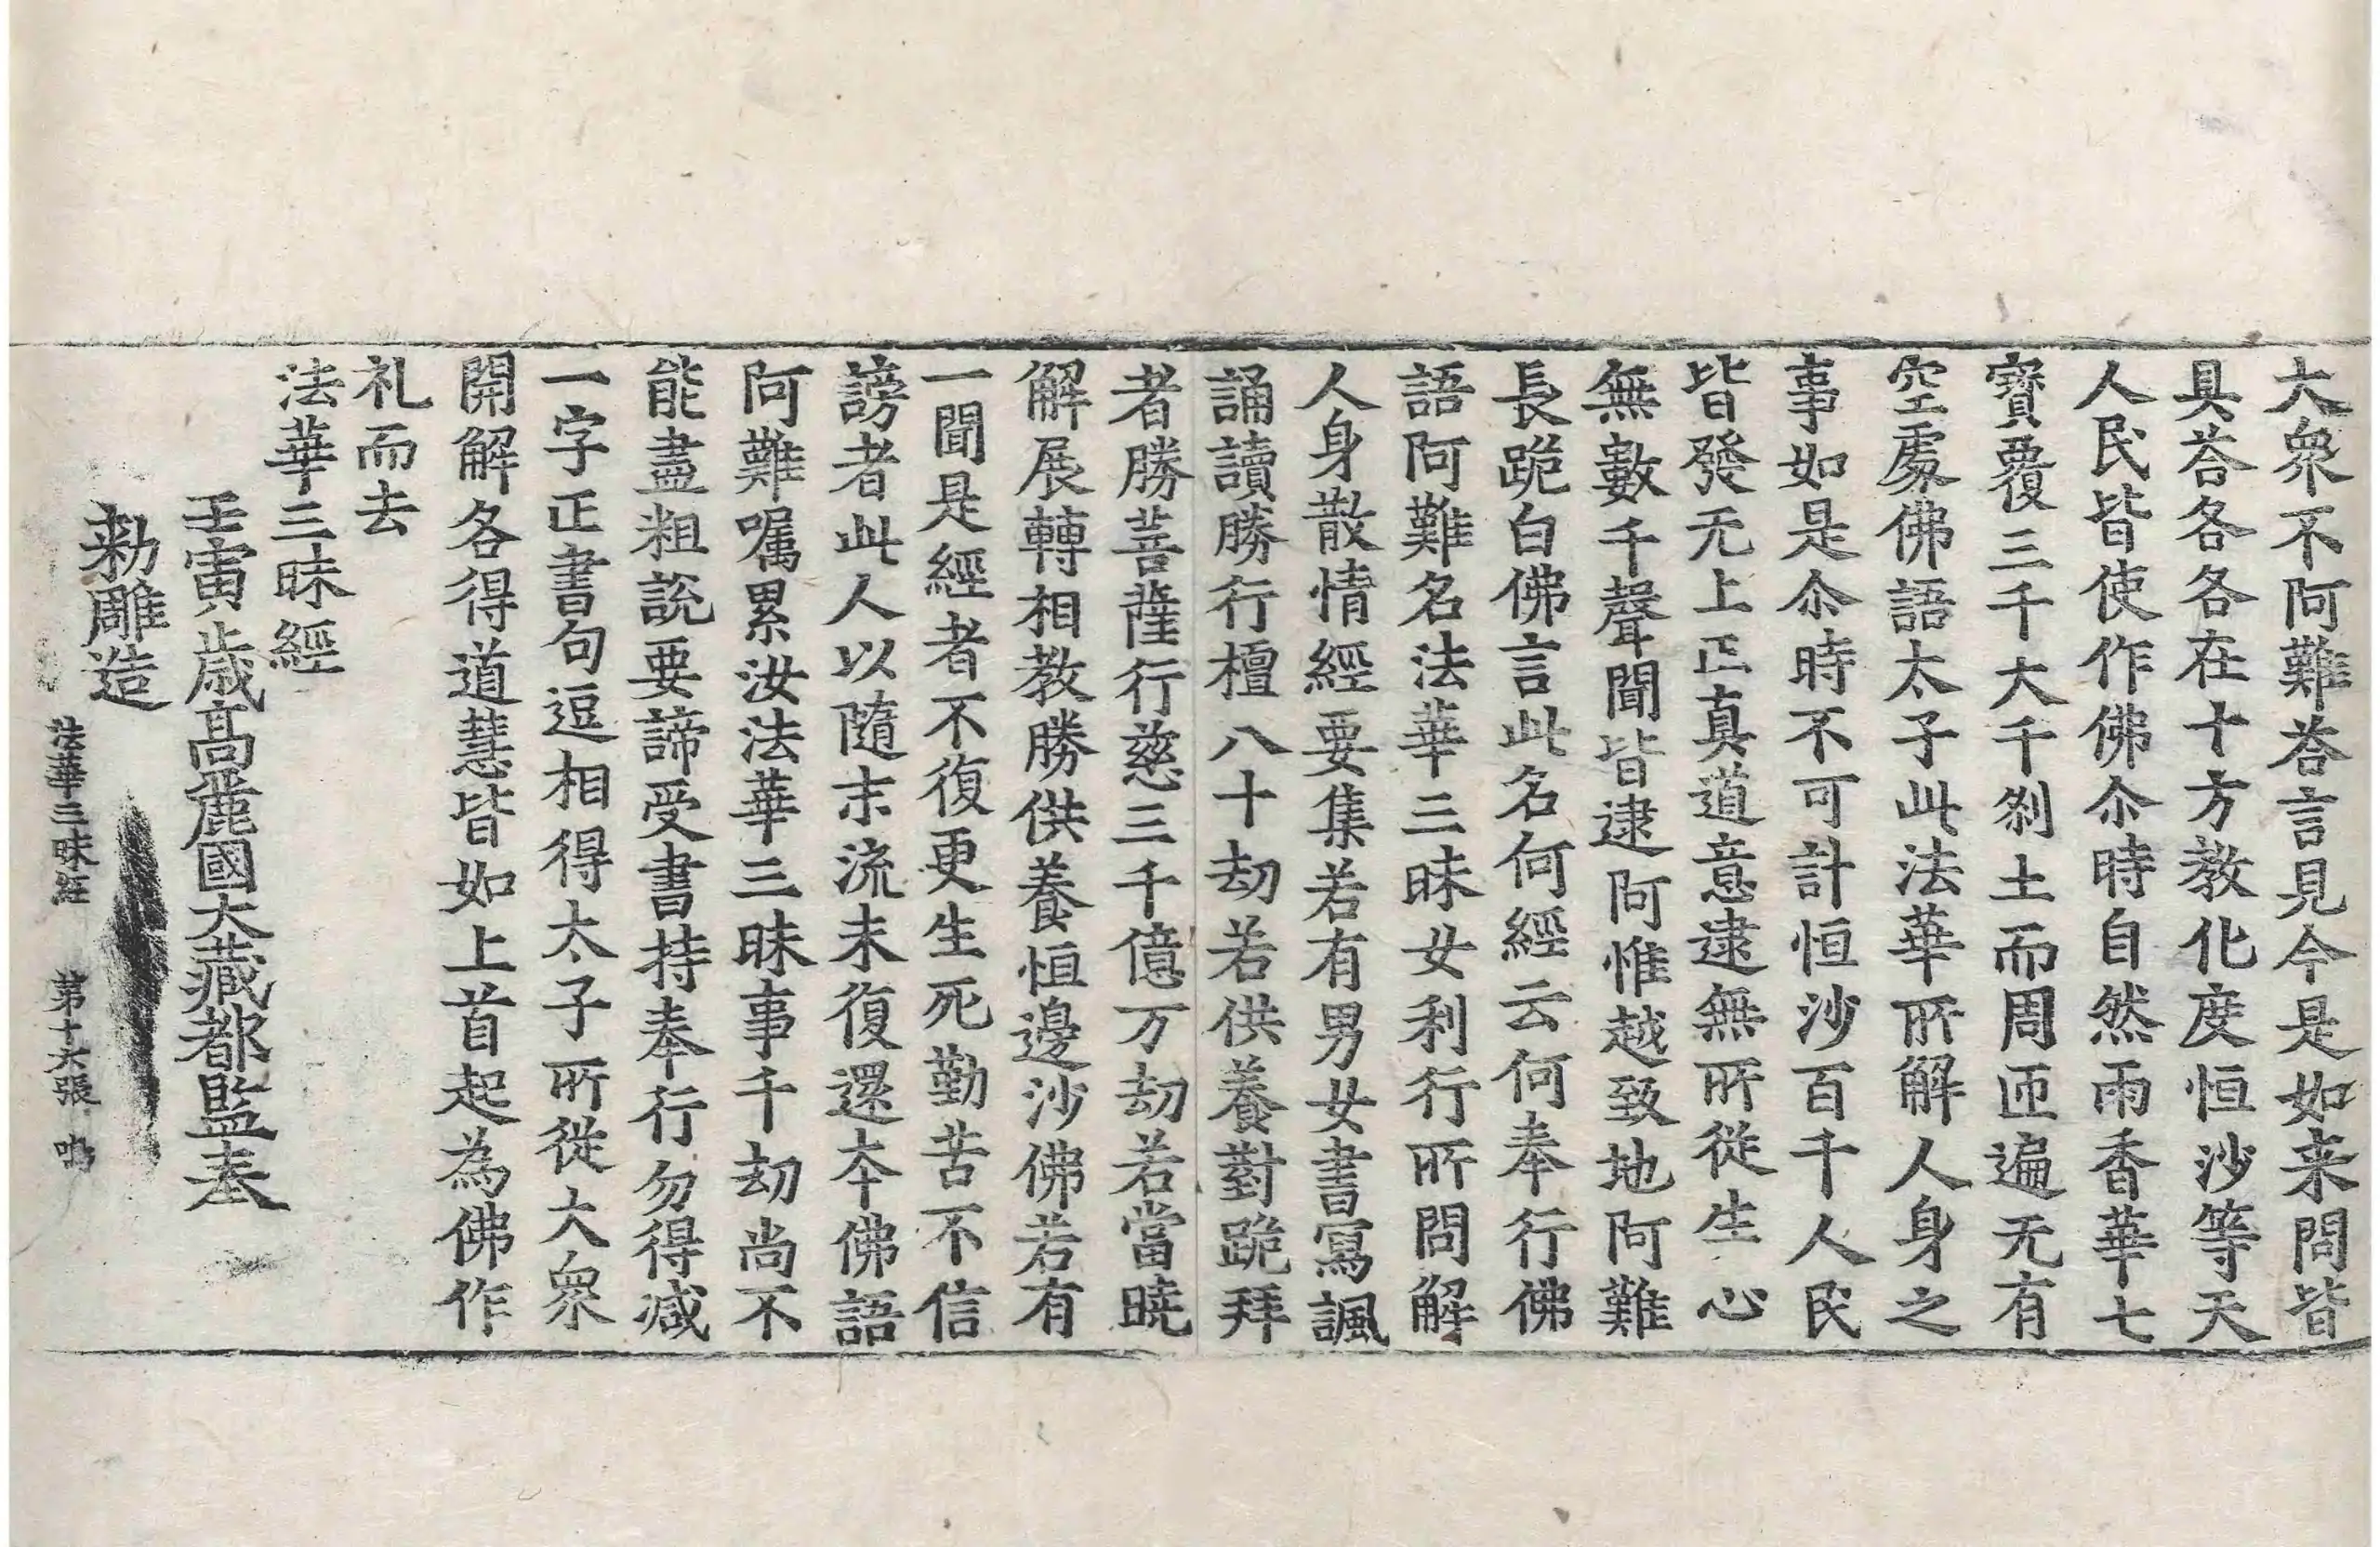 大衆不阿難荅言見今是如来問皆
具荅各各在十方教化度恒沙等天
人民皆使作佛尒時自然雨香華七
寶覆三千大千刹土而周匝遍无有
空處佛語太子此法華所解人身之
事如是尒時不可計恒沙百千人民
皆發无上正真道意逮無所從生心
無數千聲聞皆逮阿惟越致地阿難
長跪白佛言此名何經云何奉行佛
語阿難名法華三昧女利行所問解
人身散情經要集若有男女書寫諷
誦讀勝行檀八十劫若供養對跪拜
者勝菩薩行慈三千億万劫若當曉
解展轉相教勝供養恒邊沙佛若有
一聞是經者不復更生死勤苦不信
謗者此人以隨末流未復還本佛語
阿難嘱累汝法華三昧事千劫尚不
能盡粗說要諦受書持奉行勿得减
一字正書句逗相得太子所從大衆
開解各得道慧皆如上首起為佛作
礼而去
法華三昧經
壬寅歳高麗國大藏都監奉
勑雕造
法華三昧經 第十六張 鳴